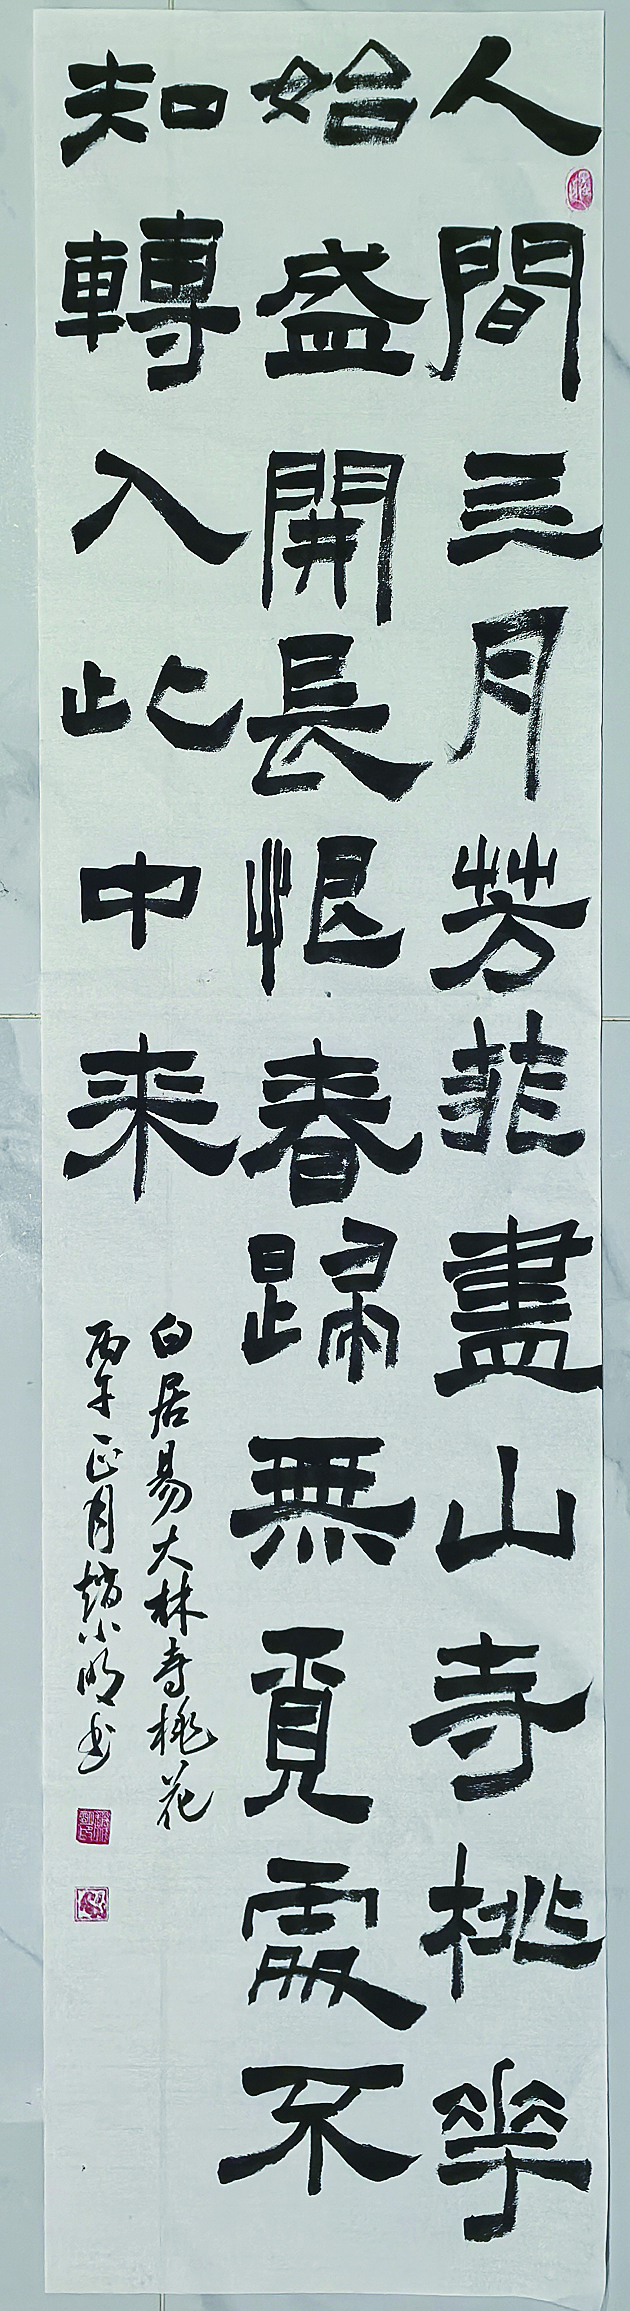 人間三月芳菲盡山寺桃華
始盛開長恨春歸無覓處不
知轉入此中来
白居易大林寺桃花
丙午正月趙小明书